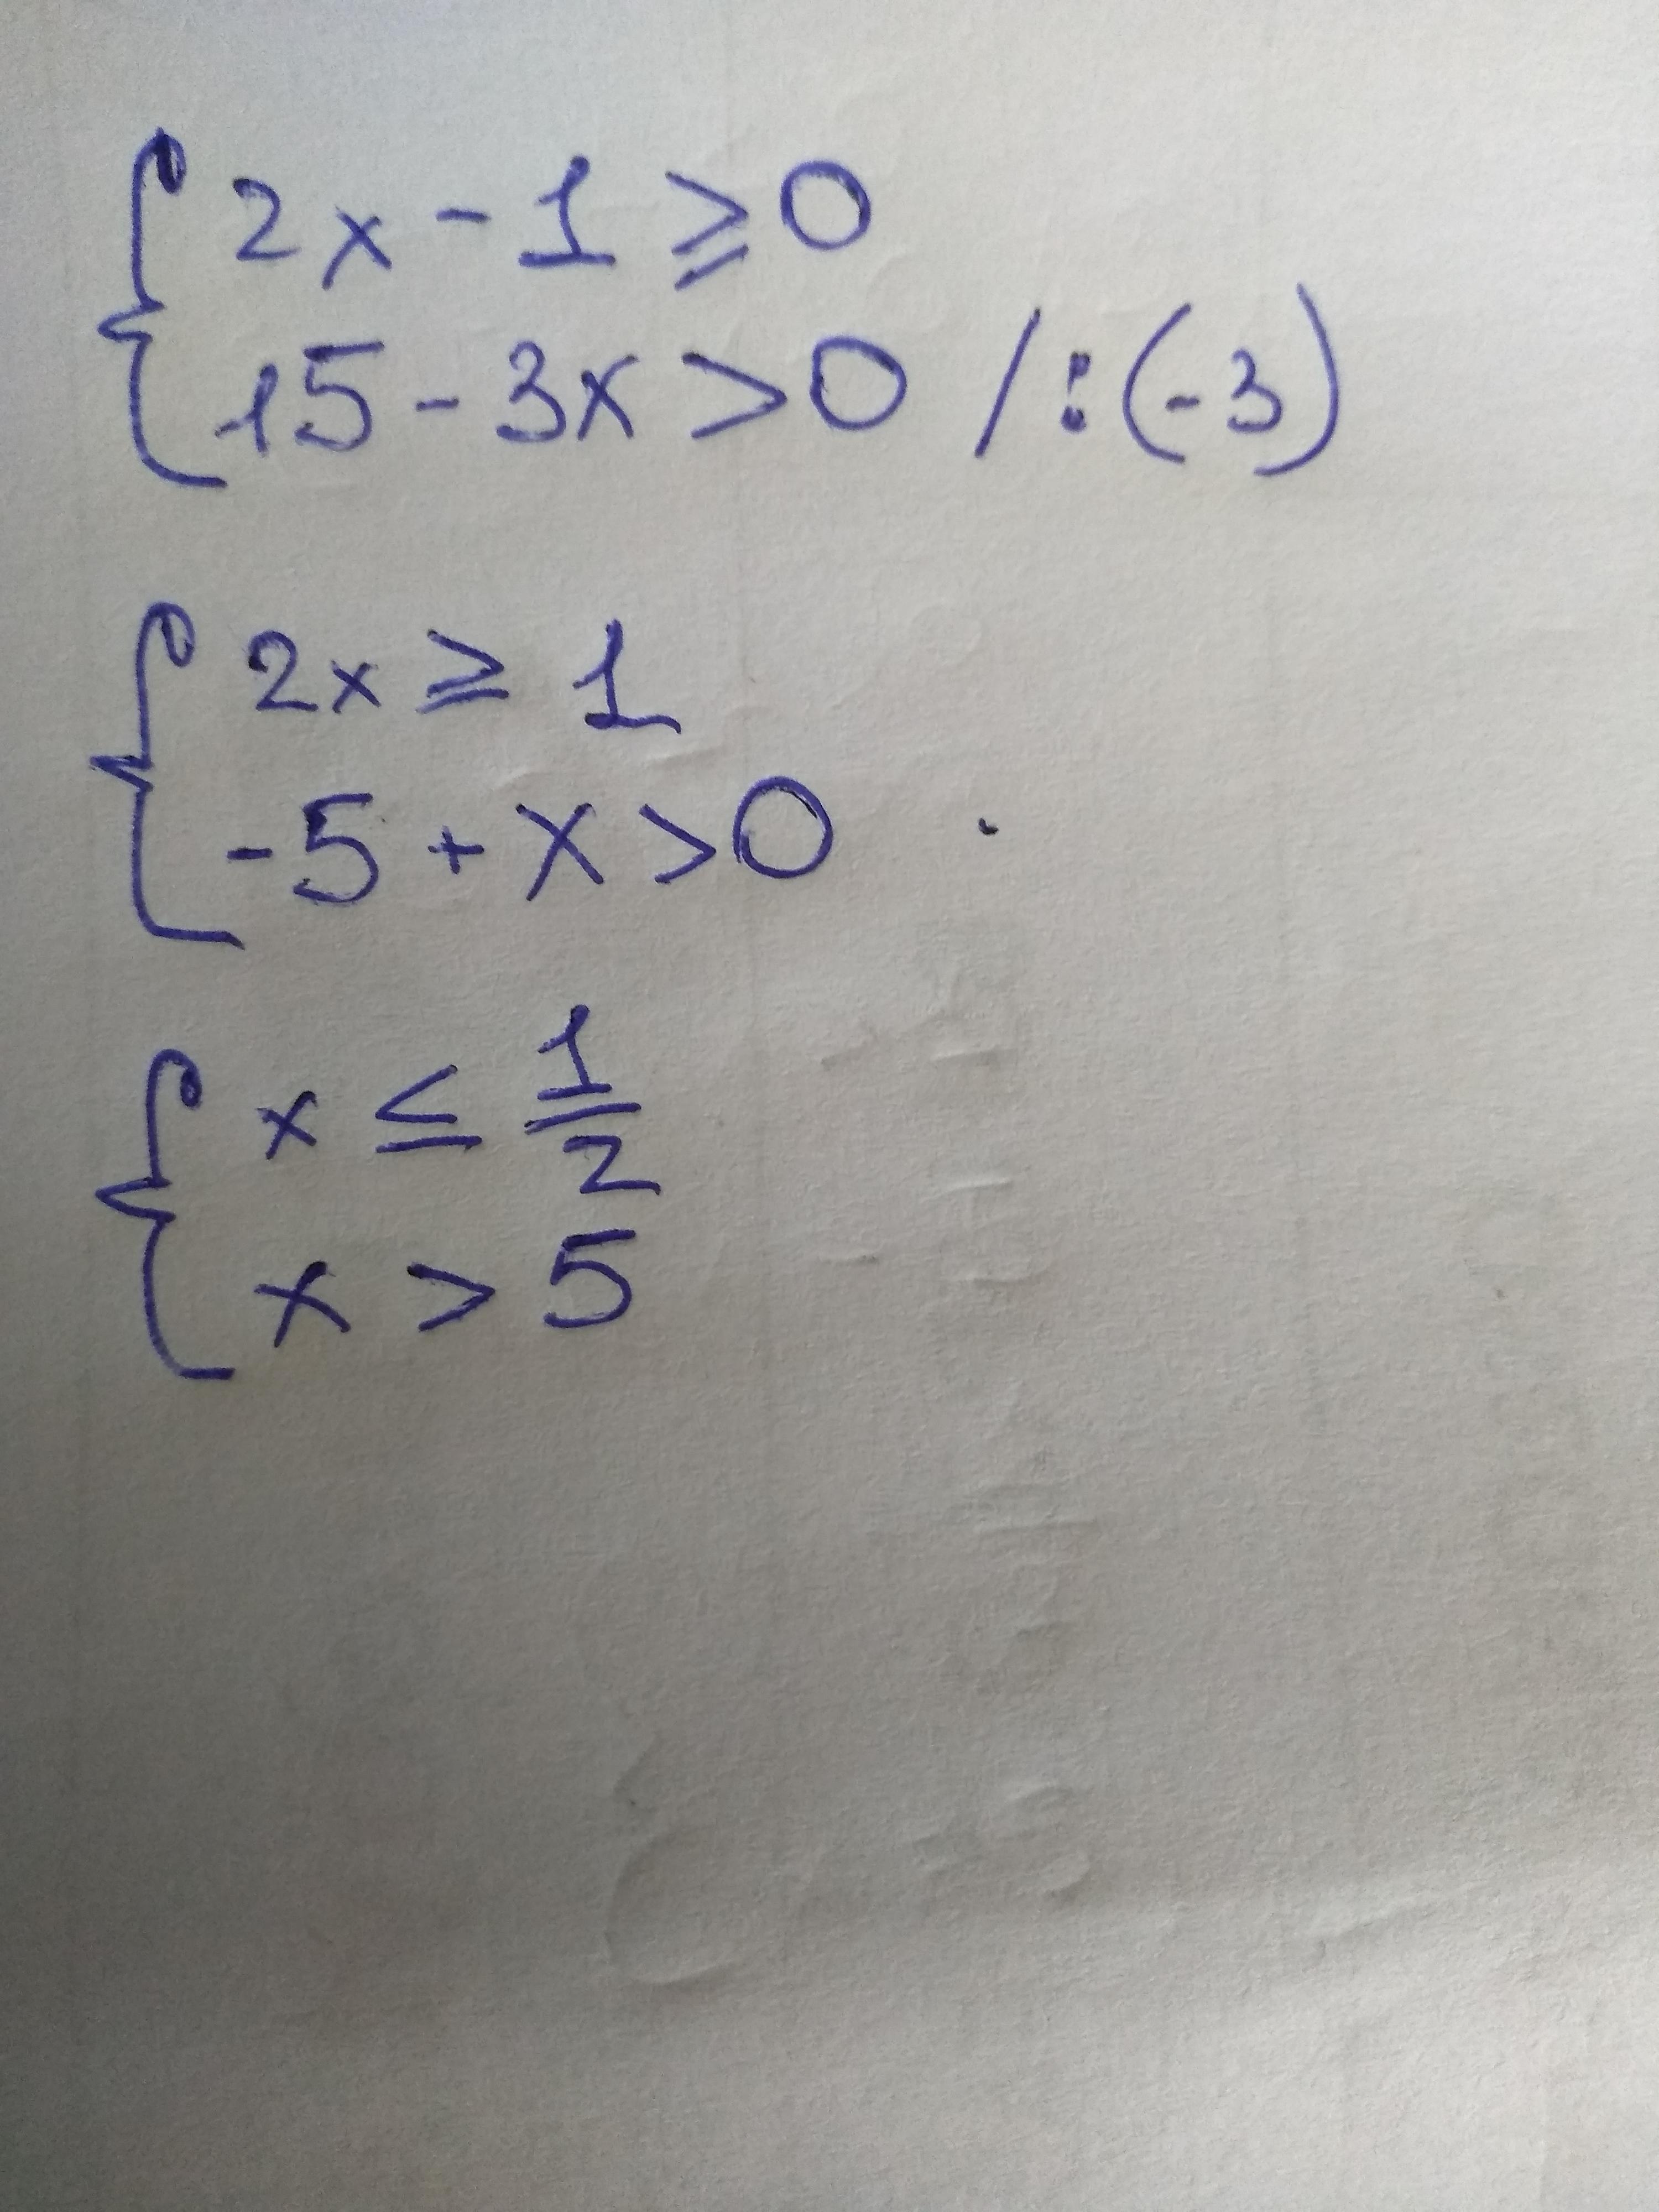 2x - 1 ≥ 0
15 - 3x > 0 / : (-3)
2x ≥ 1
-5 + x > 0
x ≤ 1/2
x > 5